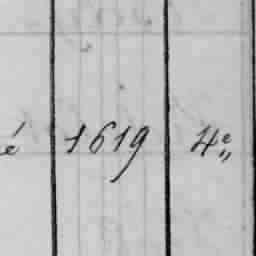 é 1619 4e„